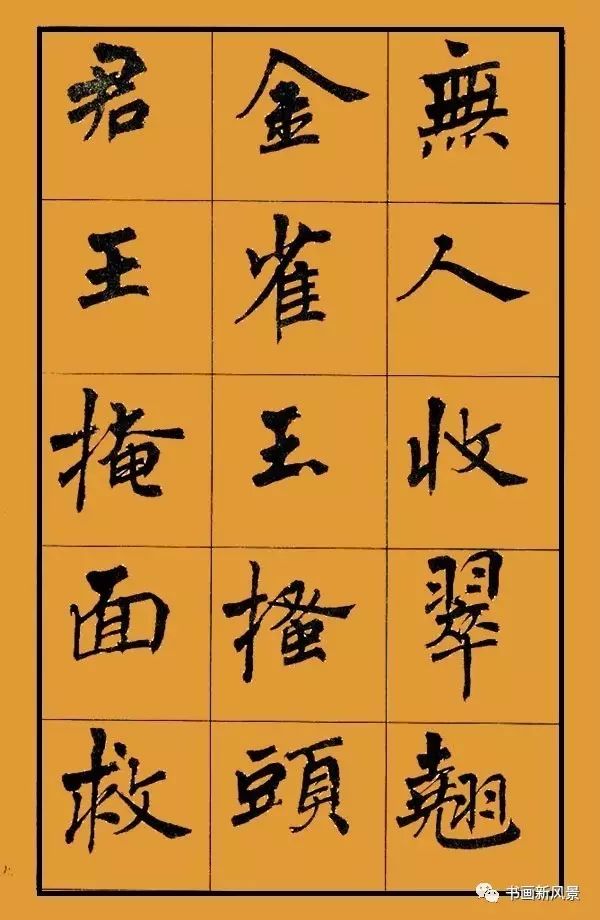 無人收翠翹
金雀玉搔頭
君王掩面救
书画新风景